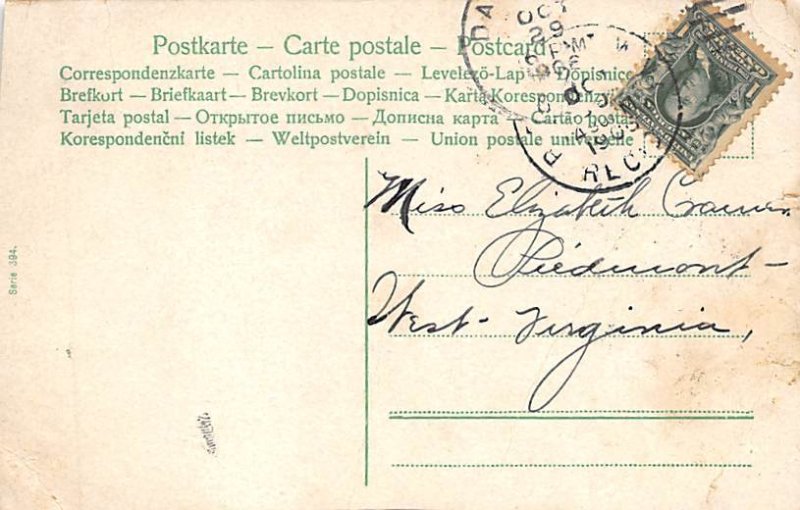 Postkarte — Carte postale — Postcard
Correspondenzkarte — Cartolina postale — Levelező-Lap — Dopisnice
Brefkort — Briefkaart — Brevkort — Dopisnica — Karta Korespondenzy
Tarjeta postal — Открытое письмо — Дописна карта — Cartão postal
Korespondenční listek — Weltpostverein — Union postale universelle
OCT
29
REC'D
1
Miss Elizabeth
Piedmont —
West — Virginia,
Serie 394.